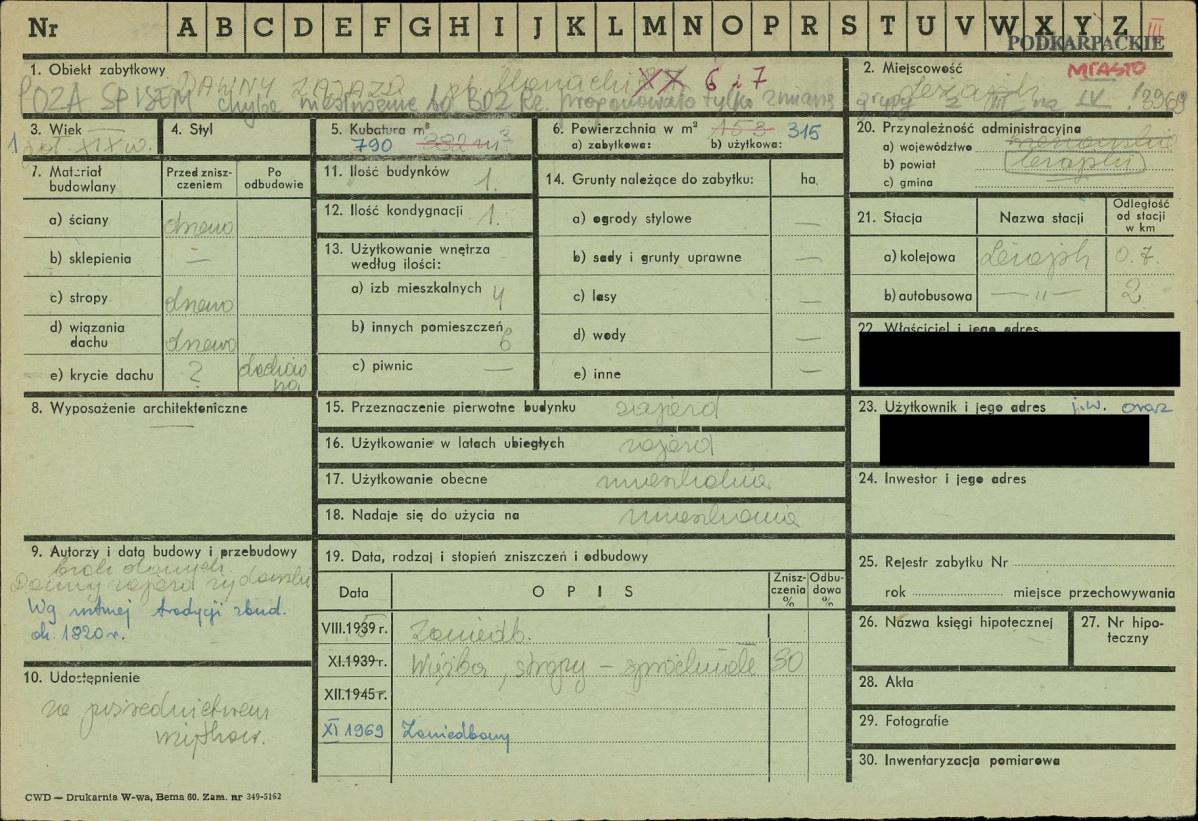 Nr A B C D E F G H I J K L M N O P R S T U V W X Y Z III
PODKARPACKIE
1. Obiekt zabytkowy
DAWNY ZAJAZD XX 6 i 7
POZA SPISEM chyba niesłusznie bo BDZ Rz. proponowało tylko zmianę
2. Miejscowość MIASTO
Leżajsk
grupy z III na IV. 1969
3. Wiek
1 poł. XIX w.
4. Styl
5. Kubatura m³
790 332 m³
6. Powierzchnia w m² 153 315
a) zabytkowa: b) użytkowa:
7. Materiał budowlany
Przed zniszczeniem
Po odbudowie
a) ściany drewno
b) sklepienia —
c) stropy drewno
d) wiązania dachu drewno
e) krycie dachu ? dachówka
8. Wyposażenie architektoniczne
—
9. Autorzy i data budowy i przebudowy
brak danych.
Dawny zajazd żydowski
Wg ustnej tradycji zbud.
ok. 1820 r.
10. Udostępnienie
za pośrednictwem
użytkow.
11. Ilość budynków 1.
12. Ilość kondygnacji 1.
13. Użytkowanie wnętrza według ilości:
a) izb mieszkalnych 4
b) innych pomieszczeń 6
c) piwnic —
14. Grunty należące do zabytku: ha.
a) ogrody stylowe —
b) sady i grunty uprawne —
c) lasy —
d) wody —
e) inne —
15. Przeznaczenie pierwotne budynku zajazd
16. Użytkowanie w latach ubiegłych zajazd
17. Użytkowanie obecne mieszkalnia
18. Nadaje się do użycia na mieszkania
19. Data, rodzaj i stopień zniszczeń i odbudowy
Data OPIS Zniszczenia % Odbudowa %
VIII.1939 r. Zaniedb.
XI.1939 r. Więźba, stropy – spróchniałe 50
XII.1945 r.
XI 1969 Zaniedbany
20. Przynależność administracyjna
a) województwo rzeszowskie
b) powiat Leżajsk
c) gmina
21. Stacja Nazwa stacji Odległość od stacji w km
a) kolejowa Leżajsk 0.7.
b) autobusowa —"— 2
22. Właściciel i jego adres
23. Użytkownik i jego adres j.w. oraz
24. Inwestor i jego adres
25. Rejestr zabytku Nr
rok miejsce przechowywania
26. Nazwa księgi hipotecznej
27. Nr hipoteczny
28. Akta
29. Fotografie
30. Inwentaryzacja pomiarowa
CWD — Drukarnia W-wa, Bema 60. Zam. nr 349-5162